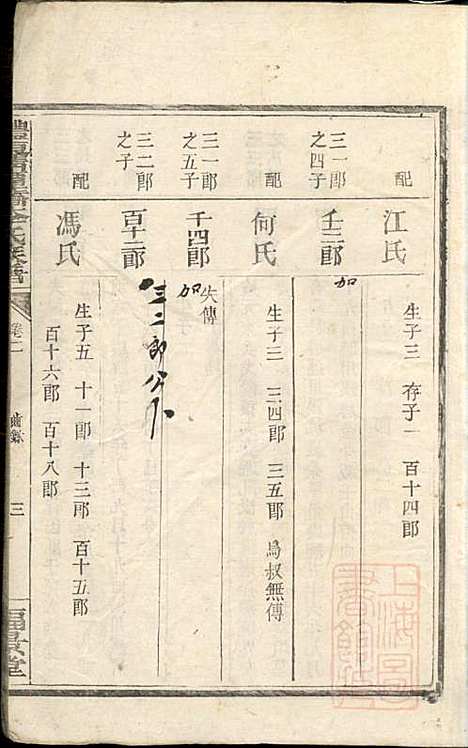 配 江氏 生子三 存子一 百十四郎
三一郎之四子 壬三郎 加
配 何氏 生子三 三四郎 三五郎 烏叔無傳
三一郎之五子 千四郎 失傳 加
三二郎之子 百十二郎 三二郎公下
配 馮氏 生子五 十一郎 十三郎 百十五郎
百十六郎 百十八郎
卷二
三
上海圖書館藏